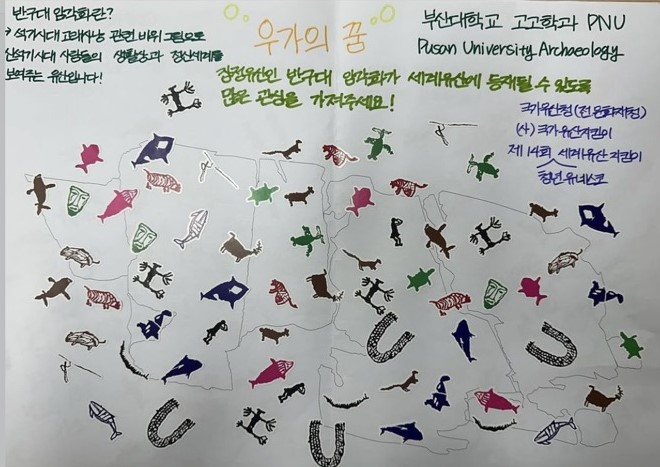 반구대 암각화란?
→ 석기시대 고래사냥 관련 바위 그림으로
신석기시대 사람들의 생활상과 정신세계를
보여주는 유산입니다!
우가의 꿈
부산대학교 고고학과 PNU
Pusan University Archaeology
잠정유산인 반구대 암각화가 세계유산에 등재될 수 있도록
많은 관심을 가져주세요!
국가유산청 (전 문화재청)
(사) 국가유산지킴이
제 14회 세계유산 지킴이
청년 유네스코